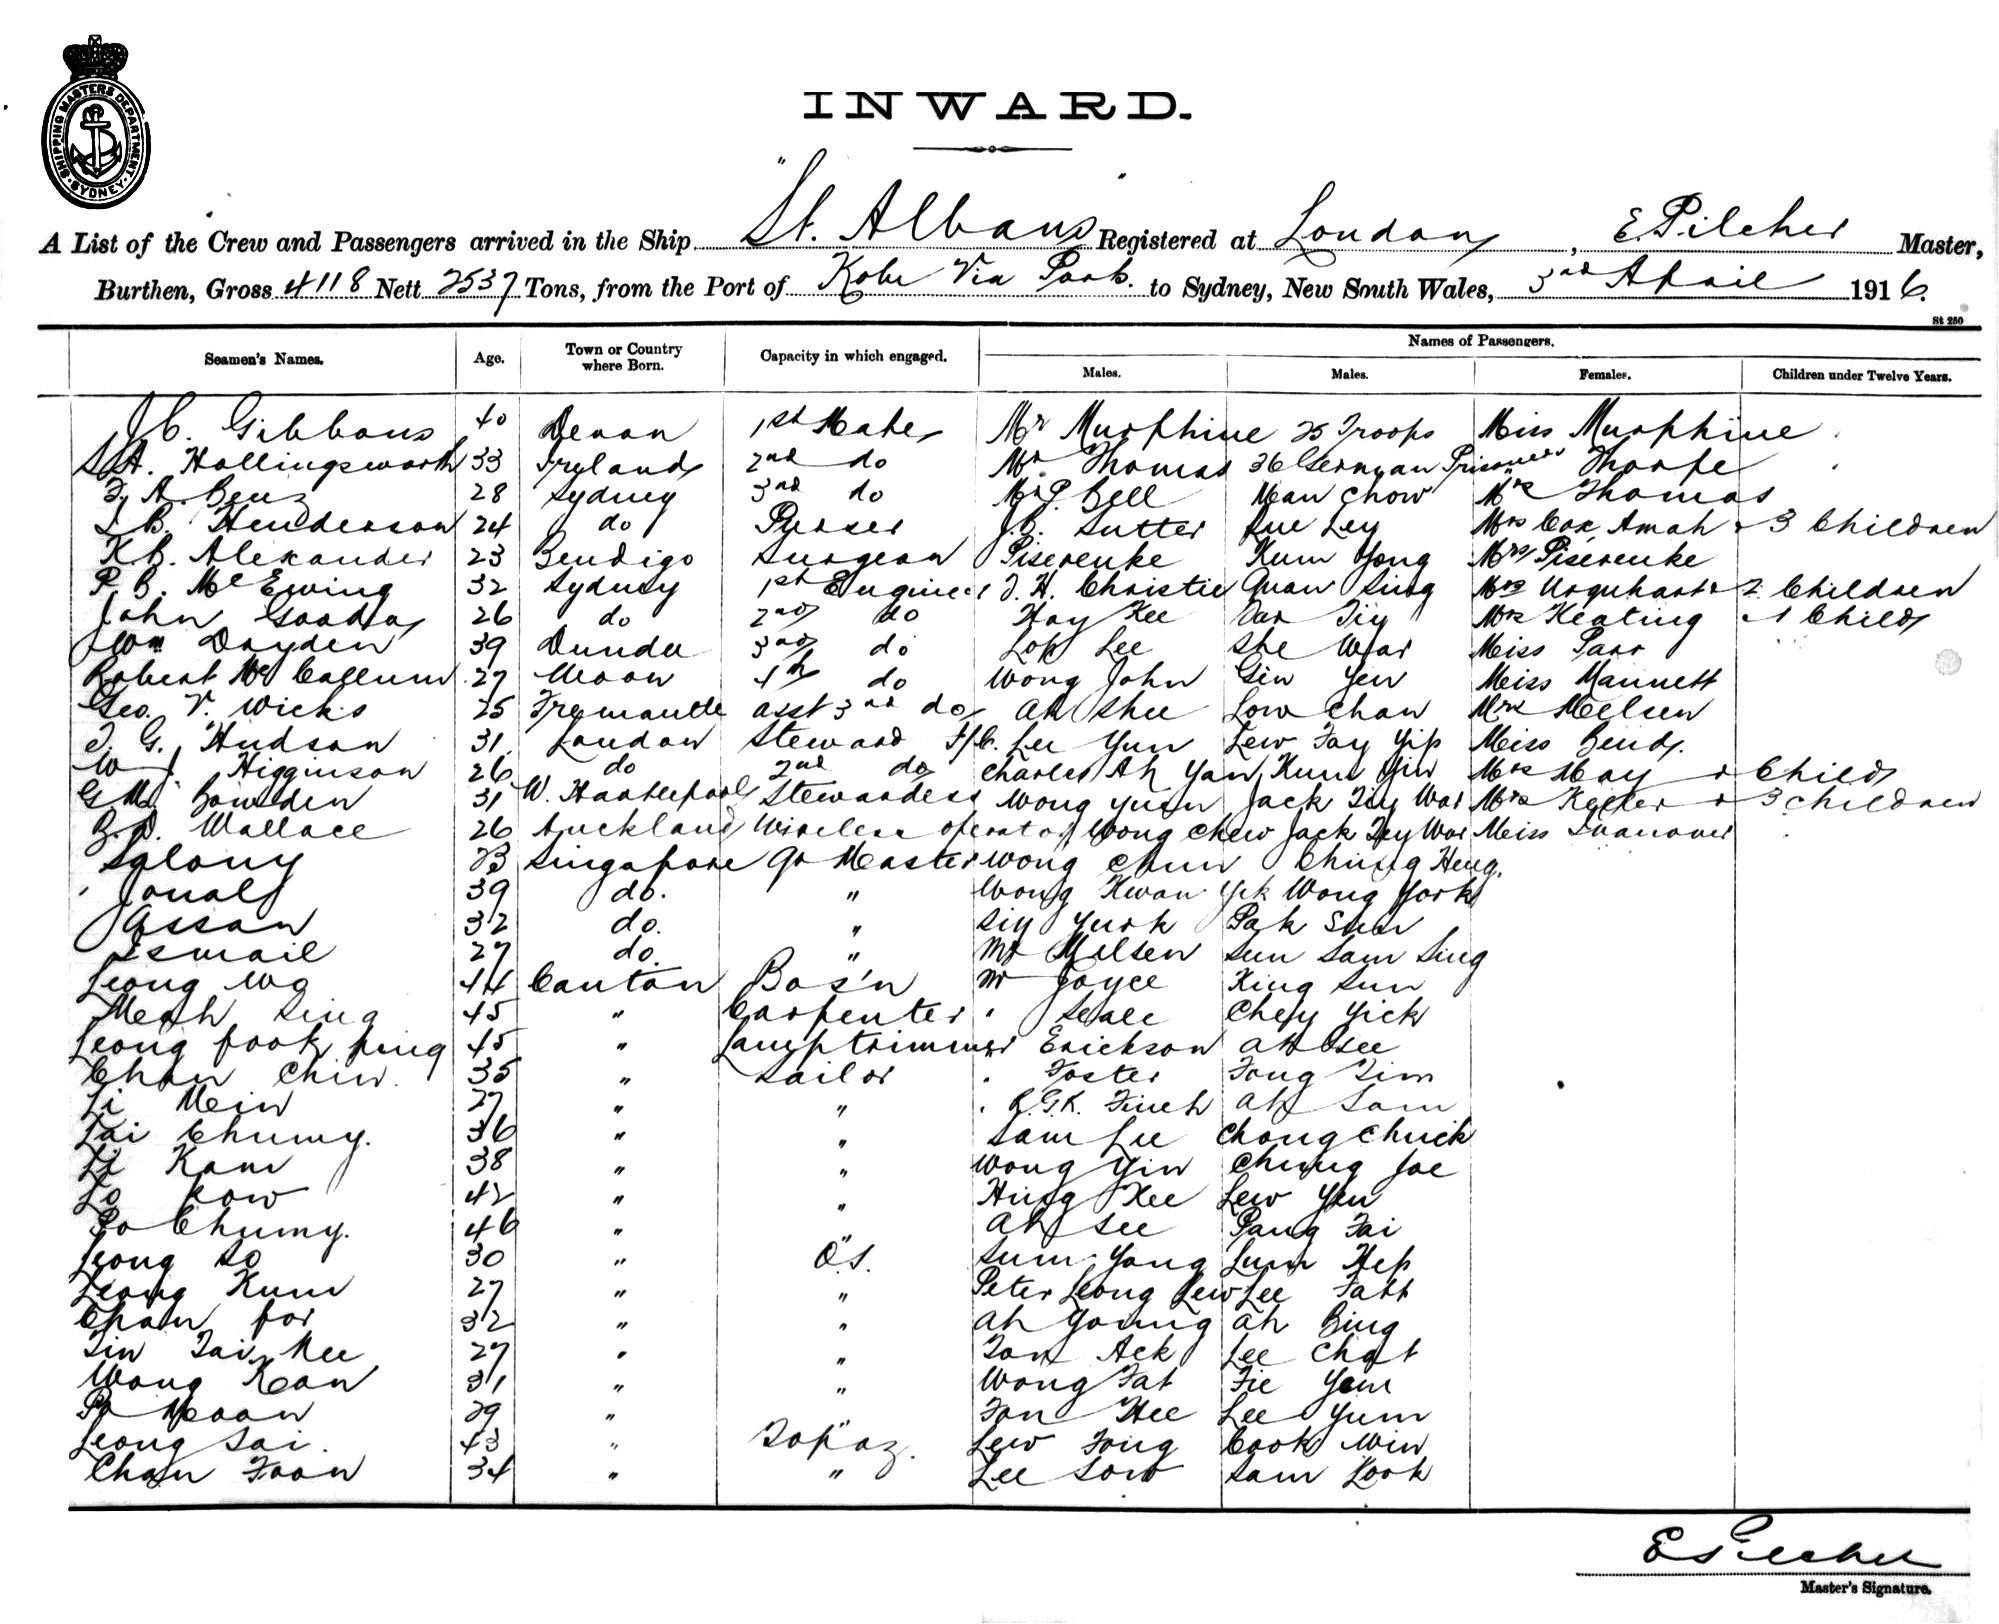 SHIPPING MASTERS DEPARTMENT SYDNEY
INWARD.
A List of the Crew and Passengers arrived in the Ship "St. Albans" Registered at London, E. Pilcher Master,
Burthen, Gross 4118 Nett 2537 Tons, from the Port of Kobe Via Ports. to Sydney, New South Wales, 3rd April 1916.
St 250
Seamen's Names. Age. Town or Country where Born. Capacity in which engaged. Names of Passengers.
Males. Males. Females. Children under Twelve Years.
J C. Gibbons 40 Devon 1st Mate Mr Murphine 25 Troops Miss Murphine
S A. Hollingsworth 33 Ireland 2nd do Mr. Thomas 36 German Prisoners " Thorpe
F. A. Benz 28 Sydney 3rd do Mr P. Bell Man Chow Mrs Thomas
B. Henderson 24 do Purser J. B. Sutter Sue Ley Mrs Cox, Amah & 3 Children
K. B. Alexander 23 Bendigo Surgeon Piserenke Kum Yong Mrs Piserenke
P. B. McEwing 32 Sydney 1st Engineer J. H. Christie Quan Sing Mrs Urquhart & 2 Children
John Goodra 26 do 2nd do Hay Kee Mrs Keating & 1 Child
Wm Dryden 39 Dundee 3rd do Lop Lee She War Miss Parr
Robert McCallum 27 Moon 4th do Wong John Gin Yen Miss Mannett
Geo. V. Wicks 25 Fremantle asst 3rd do Ah Shee Low Chan Mrs Melsen
J. G. Hudson 31 London Steward F/C. Lee Yun Lew Fay Yip Miss Bend
W J. Higginson 26 do 2nd do Charles Ah Yan Kum Yin Mrs May & Child
G M. Bowden 31 W. Hartlepool Stewardess Wong Yuen Jack Tiy War Mrs Keeler & 3 children
B. D. Wallace 26 Auckland Wireless operator Wong Chew Jack Tey War Miss
Sglony 23 Singapore Qr Master Wong Chun Chung Heng.
Jonal 39 do. " Wong Kwan Yek Wong York
Assan 32 do. " Siy Yurk Pak Sun
Ismail 27 do. " Mr Melsen Sun Sam Sing
Leong Wo 44 Canton Bos'n Mr Joyce King Sun
Meah Sing 45 " Carpenter " Seale Chey Yick
Leong fook ping 45 " Lamptrimmer " Erickson Ah See
Chan Chiw. 35 " Sailor " Foster Fong Tim
Li Mein 27 " " " R.G.K. Finch Ah Sam
Lai Chumy. 36 " " Sam Lee Chong Chuck
Li Kam 38 " " Wong Yin Chung Joe
Lo Kow 42 " " Hung Kee Lew Yen
Po Chumy. 46 " " Ah See Pang Fai
Leong So 30 " O.S. Sum Yong Lum Hep
Leong Kum 27 " " Peter Leong Lew Lee Fatt
Chan for 32 " " Ah Young Ah Bing
Tin Tai Kee 27 " " Ton Ack Lee Chat
Wong Kean 31 " " Wong Fat Fie Yem
Po Meoon 29 " " Fon Hee Lee Yum
Leong Sai. 43 " Topaz. Lew Fong Cook Win
Chan Foon 34 " " Lee Sow Sam Kook
E Pilcher
Master's Signature.